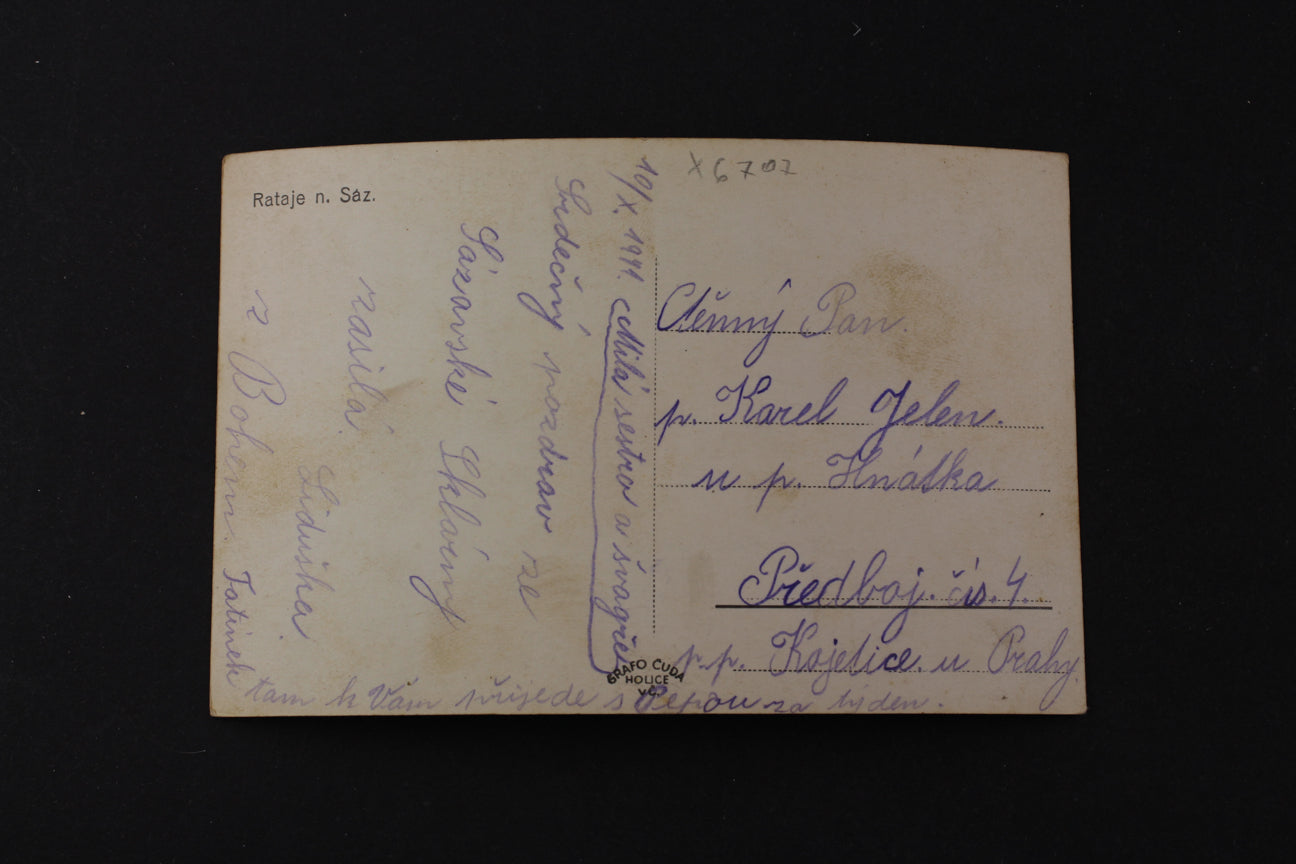 Rataje n. Sáz.
X 6707
10/X. 1941.
Milá sestro a švagře!
Srdečný pozdrav ze
Sázavské Sklárny
zasílá
Liduška.
z Bohem. Tatínek
tam k Vám přijede s Pepou za týden.
Ctěnný Pan.
p. Karel Jelen.
u p. Hnátka
Předboj. čís. 4.
p. p. Kojetice u Prahy
GRAFO ČUDA
HOLICE
V.Č.